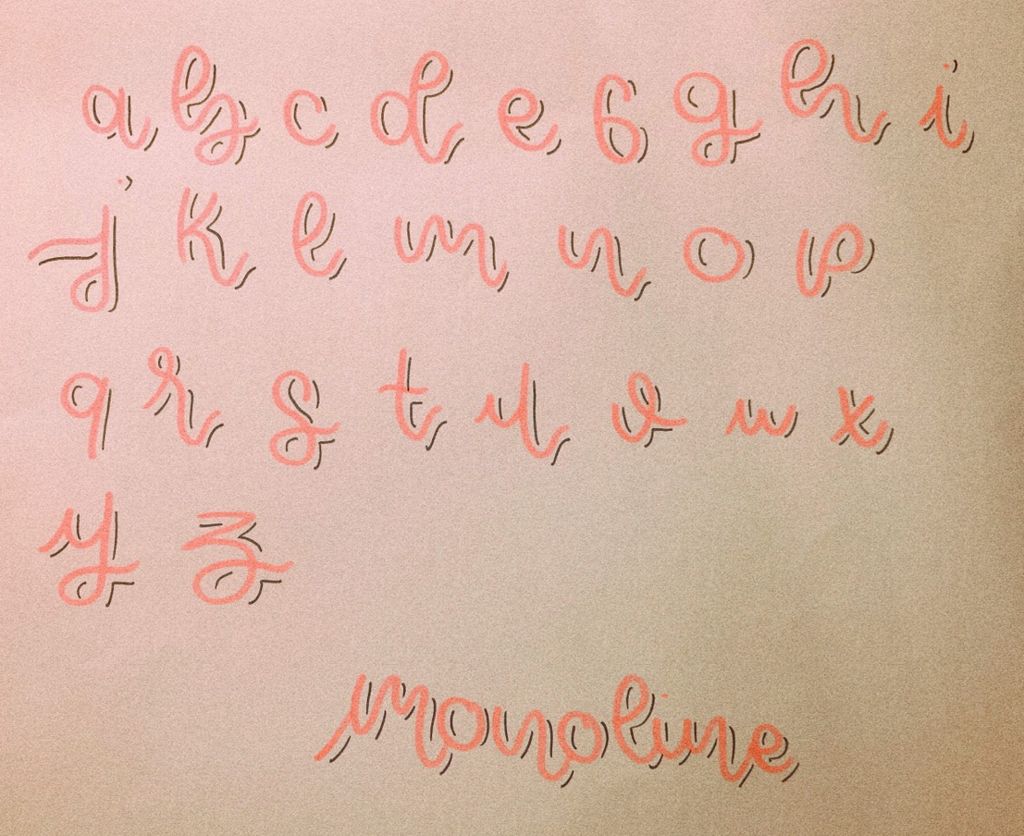 a b c d e f g h i
j k l m n o p
q r s t u v w x
y z
monoline